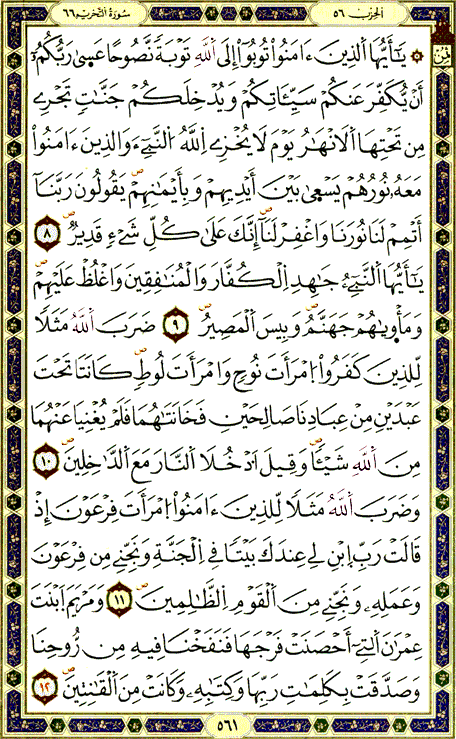 الحزب ٥٦
سورة التحريم ٦٦
ثمن
يَٰٓأَيُّهَا ٱلذِينَ ءَامَنُواْ تُوبُوٓاْ إِلَى ٱللَّهِ تَوْبَةٗ نَّصُوحًا عَسَىٰ رَبُّكُمُۥٓ
أَنْ يُّكَفِّرَ عَنكُمْ سَيِّـَٔاتِكُمْ وَيُدْخِلَكُمْ جَنَّٰتٖ تَجْرِے
مِن تَحْتِهَا ٱلَانْهَٰرُ يَوْمَ لَا يُخْزِے ٱللَّهُ ٱلنَّبِےٓءَ وَالذِينَ ءَامَنُواْ
مَعَهُۥ نُورُهُمْ يَسْعَىٰ بَيْنَ أَيْدِيهِمْ وَبِأَيْمَٰنِهِمْ يَقُولُونَ رَبَّنَآ
أَتْمِمْ لَنَا نُورَنَا وَاغْفِرْ لَنَآ إِنَّكَ عَلَىٰ كُلِّ شَےْءٖ قَدِيرٞ ٨
يَٰٓأَيُّهَا ٱلنَّبِےٓءُ جَٰهِدِ اِلْكُفَّارَ وَالْمُنَٰفِقِينَ وَاغْلُظْ عَلَيْهِمْ
وَمَأْوَىٰهُمْ جَهَنَّمُ وَبِيسَ اَلْمَصِيرُ ٩ ضَرَبَ اَللَّهُ مَثَلٗا
لِّلذِينَ كَفَرُواْ اُ۪مْرَأَتَ نُوحٖ وَامْرَأَتَ لُوطٖ كَانَتَا تَحْتَ
عَبْدَيْنِ مِنْ عِبَادِنَا صَٰلِحَيْنِ فَخَانَتَٰهُمَا فَلَمْ يُغْنِيَا عَنْهُمَا
مِنَ اَللَّهِ شَيْـٔٗا وَقِيلَ اَدْخُلَا اَلنَّارَ مَعَ اَلدَّٰخِلِينَ ١٠
وَضَرَبَ اَللَّهُ مَثَلٗا لِّلذِينَ ءَامَنُواْ اُ۪مْرَأَتَ فِرْعَوْنَ إِذْ
قَالَتْ رَبِّ اِبْنِ لِے عِندَكَ بَيْتٗا فِے اِلْجَنَّةِ وَنَجِّنِے مِن فِرْعَوْنَ
وَعَمَلِهِۦ وَنَجِّنِے مِنَ اَلْقَوْمِ اِلظَّٰلِمِينَ ١١ وَمَرْيَمَ اَبْنَتَ
عِمْرَٰنَ اَلتِےٓ أَحْصَنَتْ فَرْجَهَا فَنَفَخْنَا فِيهِ مِن رُّوحِنَا
وَصَدَّقَتْ بِكَلِمَٰتِ رَبِّهَا وَكِتَٰبِهِۦ وَكَانَتْ مِنَ اَلْقَٰنِتِينَ ١٢
٥٦١